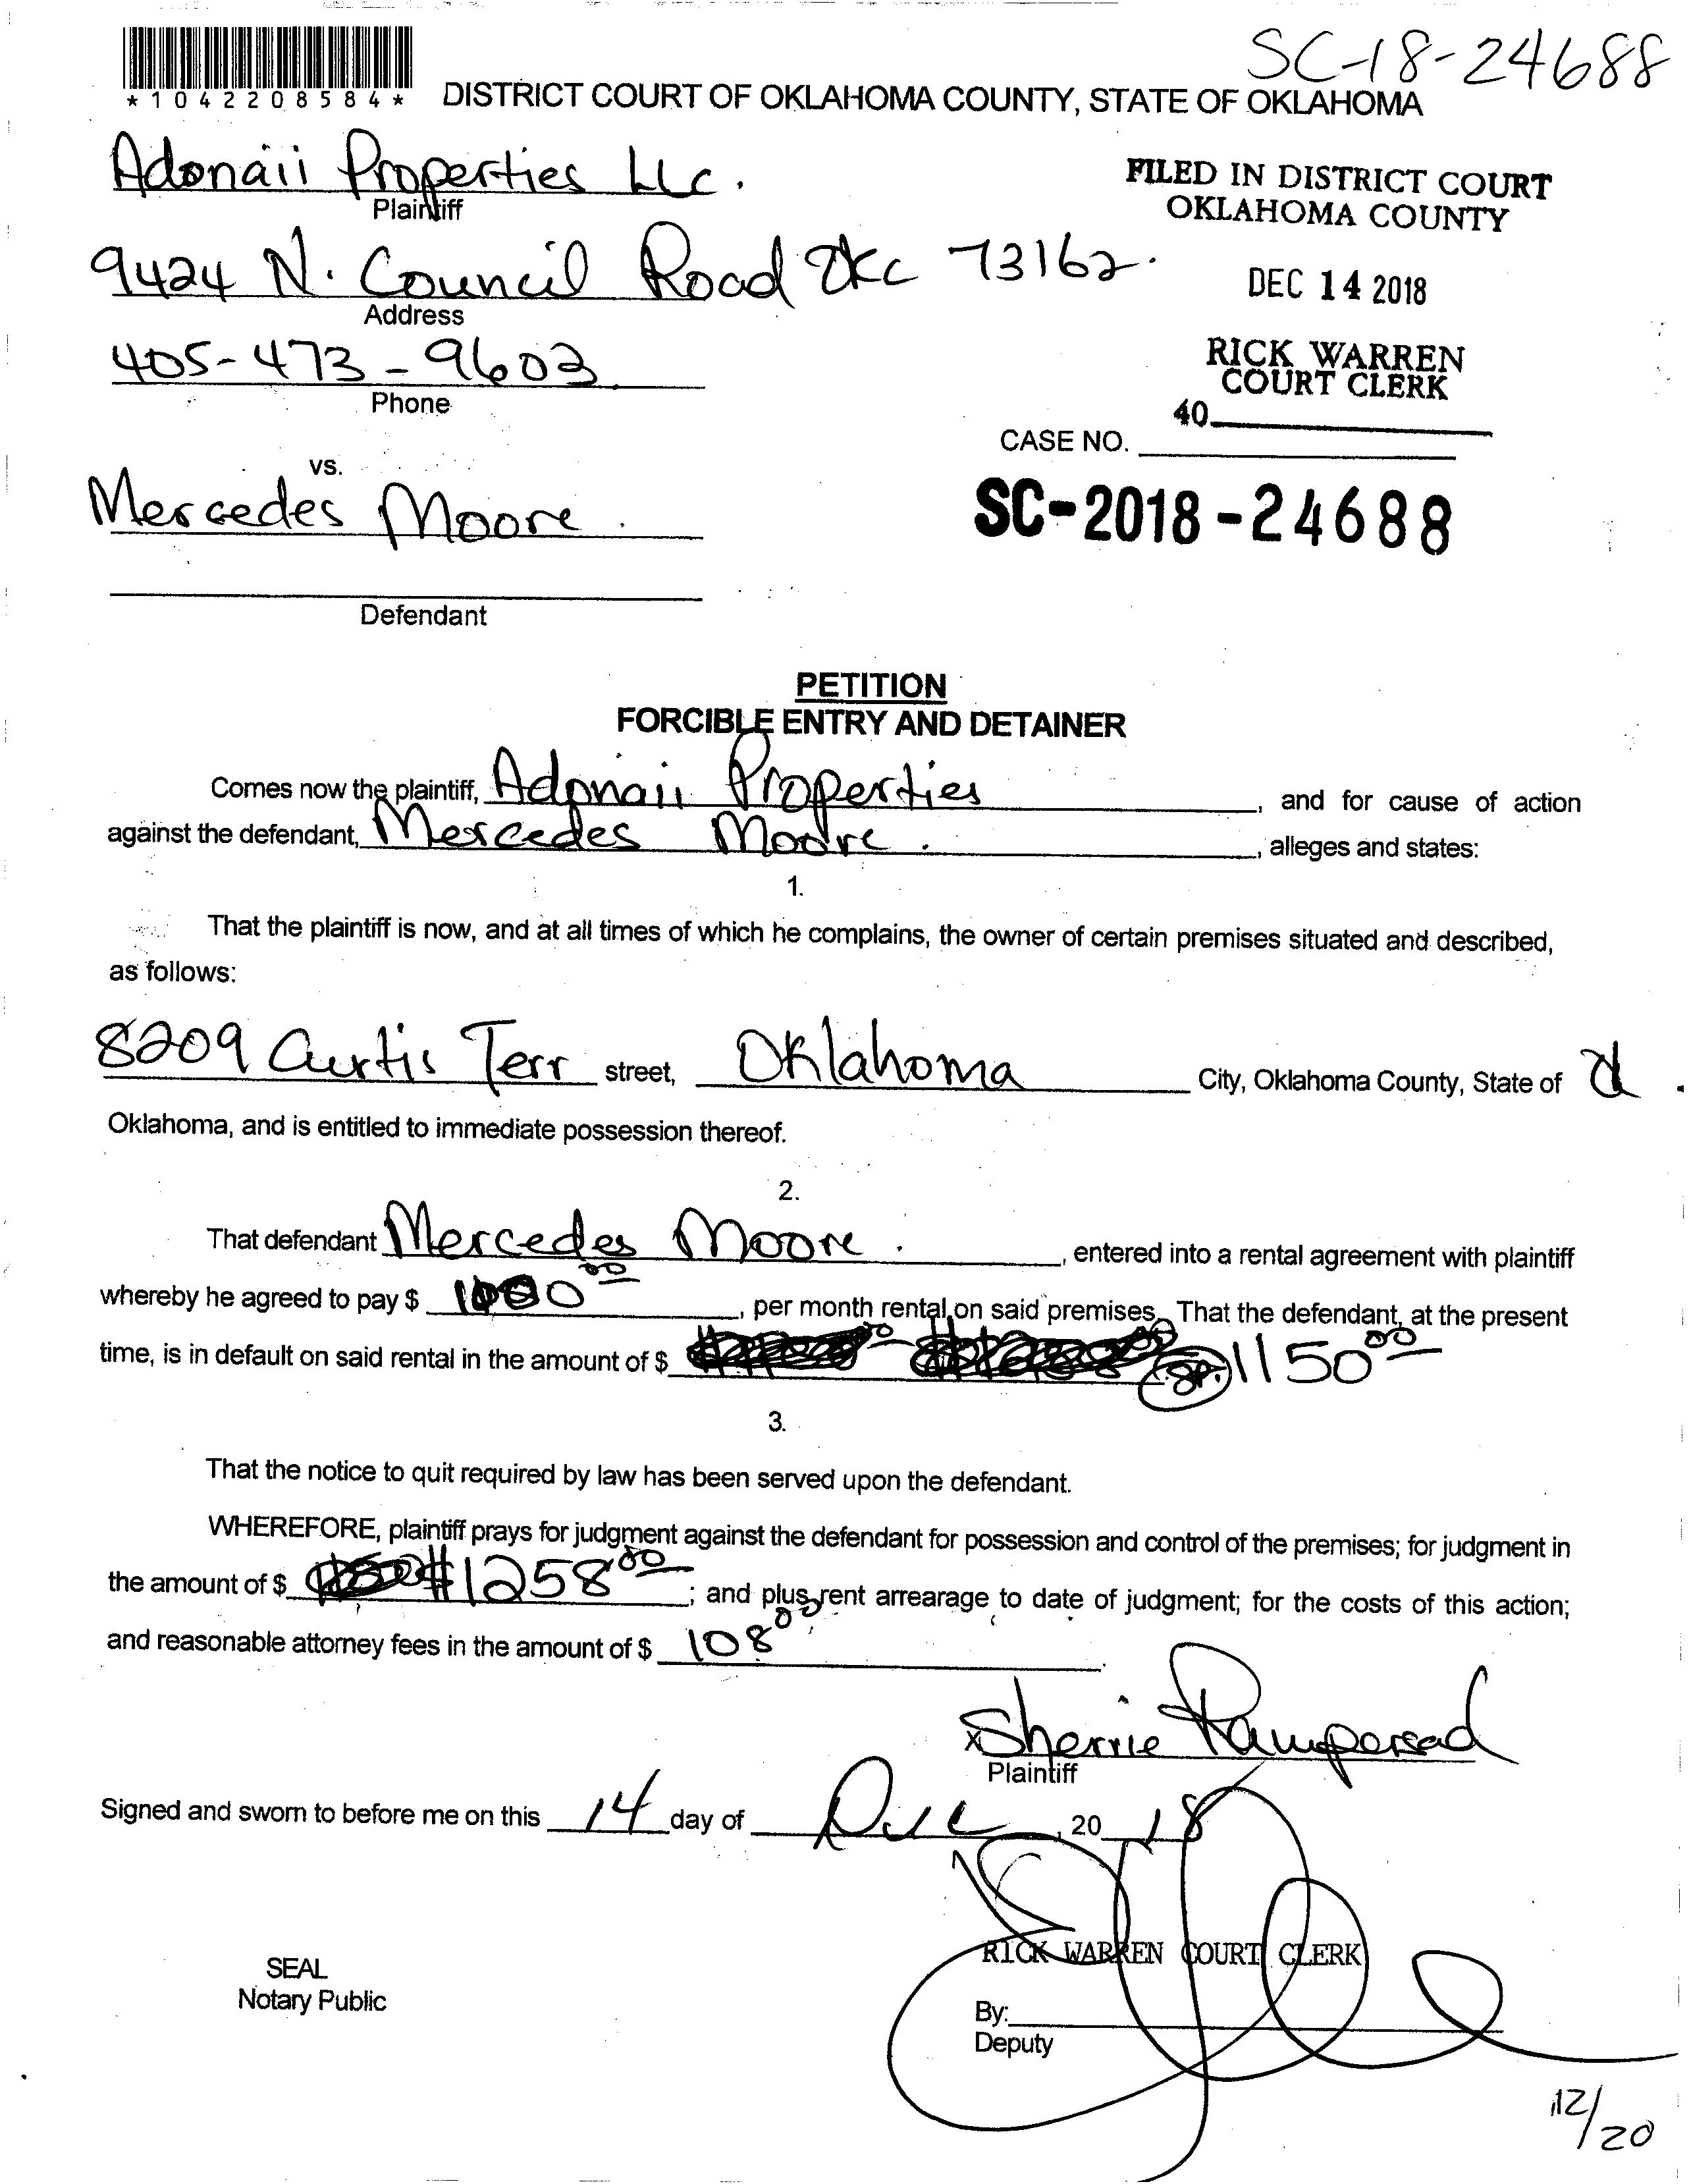 SC-18-24688
*1042208584*
DISTRICT COURT OF OKLAHOMA COUNTY, STATE OF OKLAHOMA
Adonaii Properties LLc.
Plaintiff
FILED IN DISTRICT COURT
OKLAHOMA COUNTY
9424 N. Council Road OKC 73162.
Address
DEC 14 2018
405-473-9603
Phone
RICK WARREN
COURT CLERK
40
CASE NO.
vs.
Mercedes Moore.
SC-2018-24688
Defendant
PETITION
FORCIBLE ENTRY AND DETAINER
Comes now the plaintiff, Adonaii Properties, and for cause of action
against the defendant, Mercedes Moore., alleges and states:
1.
That the plaintiff is now, and at all times of which he complains, the owner of certain premises situated and described,
as follows:
8209 Curtis Terr street, Oklahoma City, Oklahoma County, State of
Oklahoma, and is entitled to immediate possession thereof.
2.
That defendant Mercedes Moore., entered into a rental agreement with plaintiff
whereby he agreed to pay $, per month rental on said premises. That the defendant, at the present
time, is in default on said rental in the amount of $ 1150 00
3.
That the notice to quit required by law has been served upon the defendant.
WHEREFORE, plaintiff prays for judgment against the defendant for possession and control of the premises; for judgment in
the amount of $ $1258 00; and plus rent arrearage to date of judgment; for the costs of this action;
and reasonable attorney fees in the amount of $ 108 00.
x Sherrie Rampersad
Plaintiff
Signed and sworn to before me on this 14 day of Dec, 20 18
RICK WARREN COURT CLERK
SEAL
Notary Public
By:
Deputy
12/20